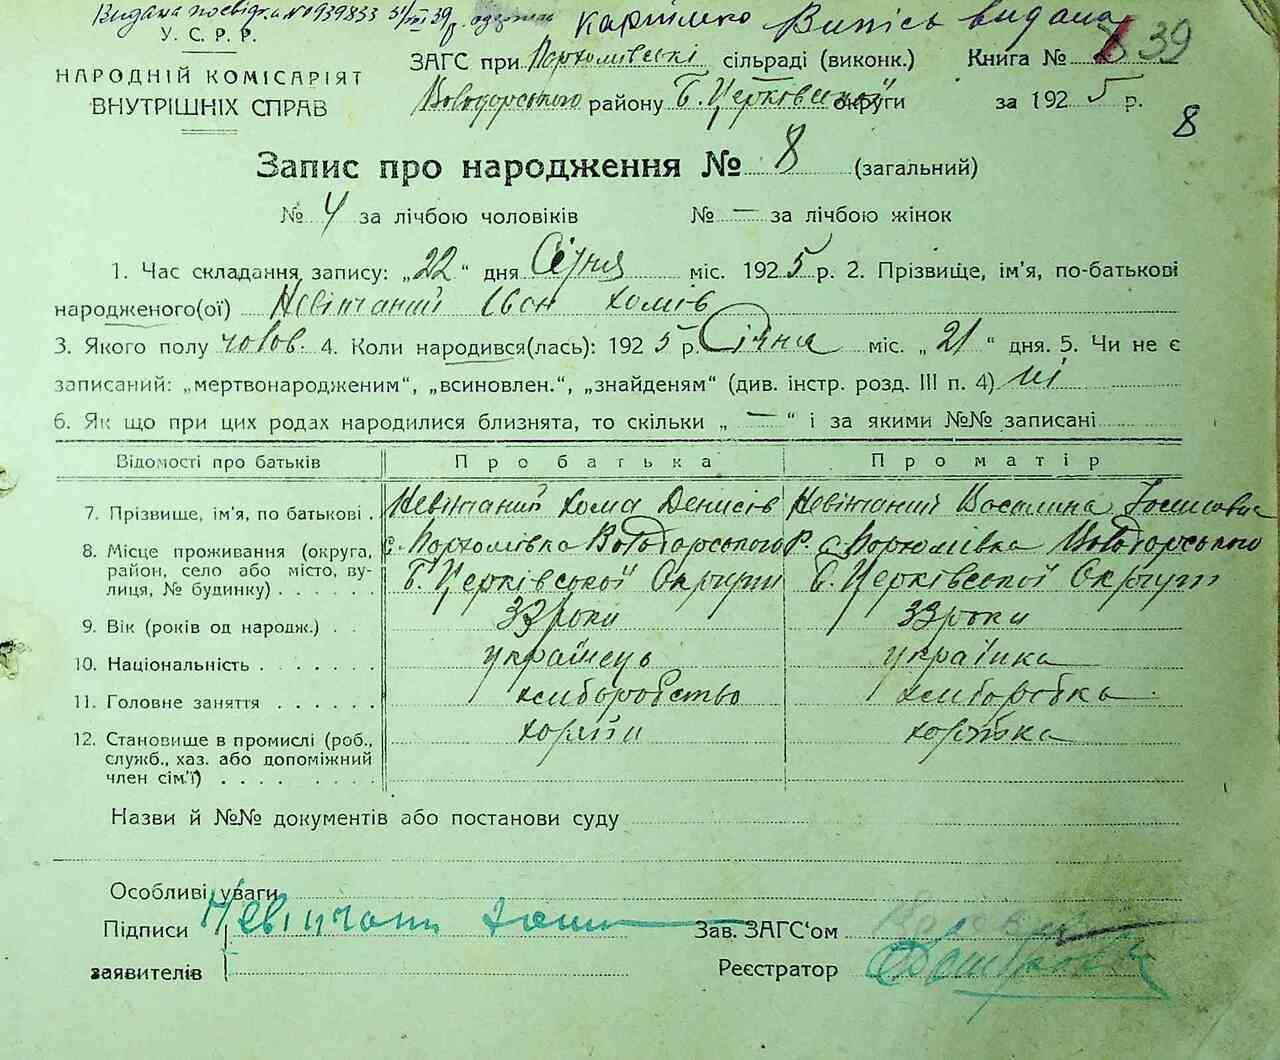 Видана посвідка №939833 31/III 39р. Випись видана
У. С. Р. Р.
НАРОДНІЙ КОМІСАРІЯТ
ВНУТРІШНІХ СПРАВ
ЗАГС при Пархомівській сільраді (виконк.) Книга № 39
Володарського району Б. Церківської округи за 1925 р.
8
Запис про народження № 8 (загальний)
№ 4 за лічбою чоловіків № — за лічбою жінок
1. Час складання запису: „22“ дня Січня міс. 1925 р. 2. Прізвище, ім'я, по-батькові
народженого(ої) Невінчаний Іван Хомів
3. Якого полу чолов. 4. Коли народився(лась): 1925 р. Січня міс. „21“ дня. 5. Чи не є
записаний: „мертвонародженим“, „всиновлен.“, „знайденям“ (див. інстр. розд. III п. 4) ні
6. Як що при цих родах народилися близнята, то скільки „—“ і за якими №№ записані
Відомості про батьків Про батька Про матір
7. Прізвище, ім'я, по батькові Невінчаний Хома Денисів Невінчаний Василина
8. Місце проживання (округа, район, село або місто, вулиця, № будинку) с. Пархомівка Володарського р. Б. Церківської Округи с. Пархомівка Володарського Б. Церківської Округи
9. Вік (років од народж.) 33 роки 33 роки
10. Національність українець українка
11. Головне заняття хліборобство хліборобка
12. Становище в промислі (роб., служб., хаз. або допоміжний член сім'ї) хазяїн хазяйка
Назви й №№ документів або постанови суду
Особливі уваги
Підписи Зав. ЗАГС'ом
заявителів Реєстратор